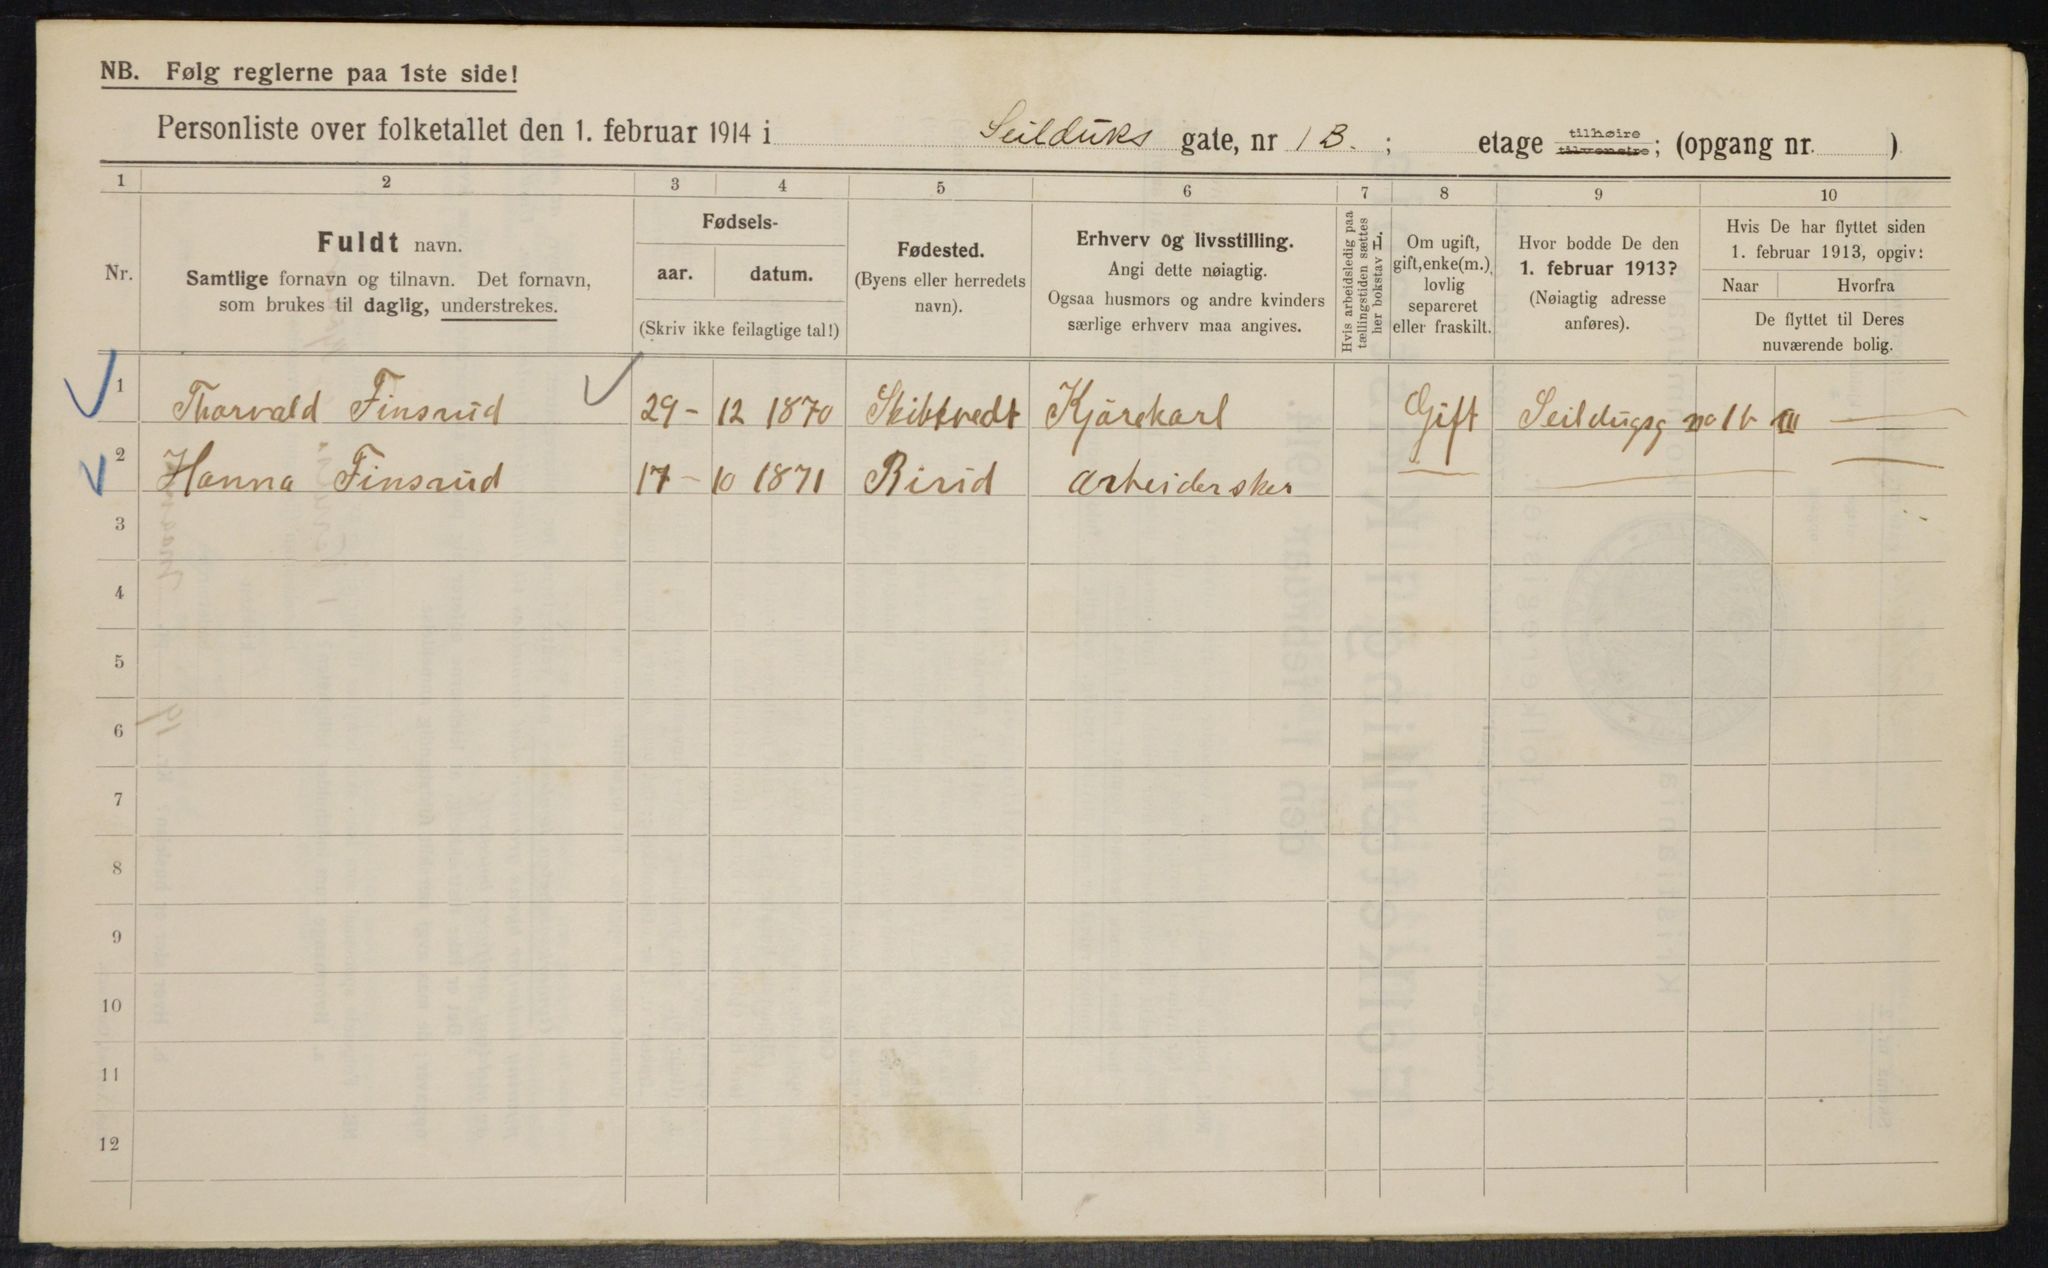 NB. Følg reglerne paa 1ste side!
Personliste over folketallet den 1. februar 1914 i Seilduks gate, nr 1 B. ; etage tilhøire tilvenstre; (opgang nr. )
1 2 3 4 5 6 7 8 9 10
Nr.
Fuldt navn.
Samtlige fornavn og tilnavn. Det fornavn,
som brukes til daglig, understrekes.
Fødsels-
aar. datum.
(Skriv ikke feilagtige tal!)
Fødested.
(Byens eller herredets
navn).
Erhverv og livsstilling.
Angi dette nøiagtig.
Ogsaa husmors og andre kvinders
særlige erhverv maa angives.
Hvis arbeidsledig paa
tællingstiden sættes
her bokstav L.
Om ugift,
gift, enke(m.),
lovlig
separeret
eller fraskilt.
Hvor bodde De den
1. februar 1913?
(Nøiagtig adresse
anføres).
Hvis De har flyttet siden
1. februar 1913, opgiv:
Naar Hvorfra
De flyttet til Deres
nuværende bolig.
1 Thorvald Finsrud 29 - 12 1870 Skibtvedt Kjørekarl Gift Seildugsg no 1b III
2 Hanna Finsrud 17 - 10 1871 Birid Arbeidersker
3
4
5
6
7
8
9
10
11
12